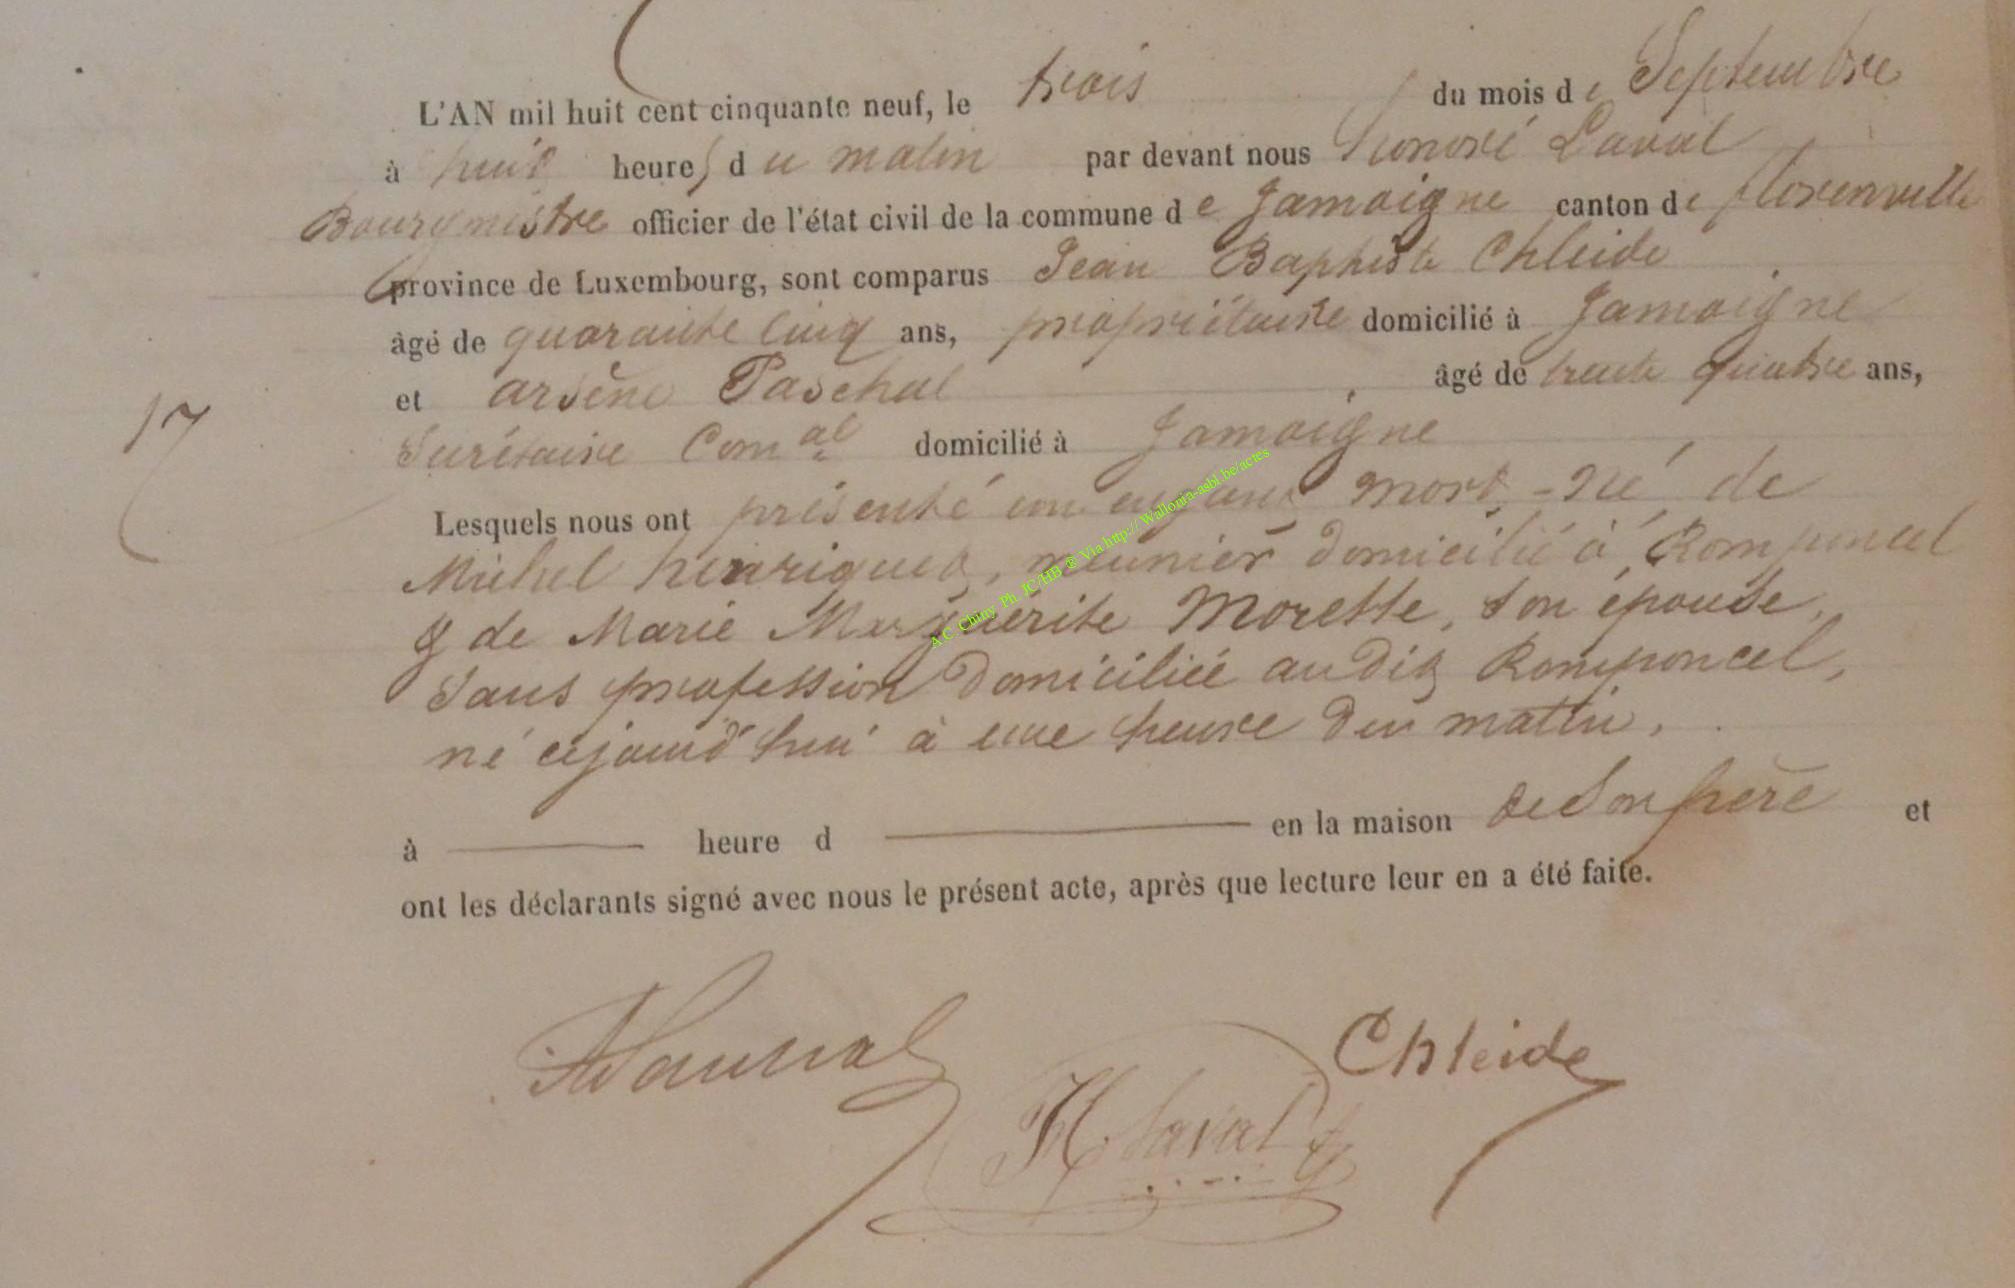 L'AN mil huit cent cinquante neuf, le trois du mois de Septembre
à huit heures du matin par devant nous Honoré Laval
Bourgmestre officier de l'état civil de la commune de Jamoigne canton de florenville
province de Luxembourg, sont comparus Jean Baptiste Chleide
âgé de quarante cinq ans, propriétaire domicilié à Jamoigne
et arsène Paschal âgé de trente quatre ans,
Secrétaire Com.al domicilié à Jamoigne
17
Lesquels nous ont présenté un enfant mort-né de
Michel henriquet, meunier domicilié à Romponcel
& de Marie Marguerite Morette, son épouse,
sans profession domiciliée audit Romponcel,
né cejourd'hui à une heure du matin.
à heure d en la maison de son père et
ont les déclarants signé avec nous le présent acte, après que lecture leur en a été faite.
Chleide
H. Laval
A.C. Chiny Ph JC/HB ® Via http:// Wallonia-asbl.be/actes